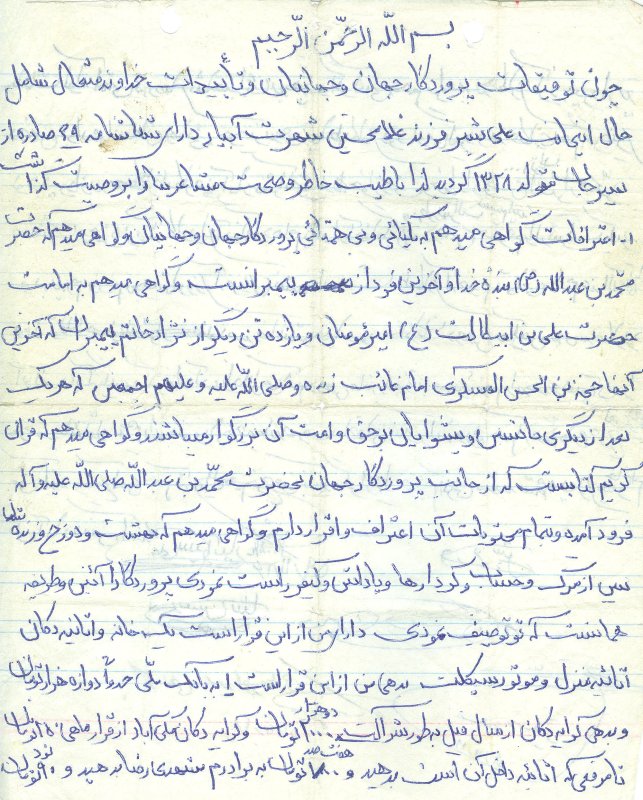 بسم الله الرحمن الرحیم
چون توفیقات پروردگار جهان و جهانیان و تأییدات خداوند متعال شامل
حال اینجانب علی شیر فرزند غلامحسین شهرت آبیار دارای شناسنامه ۶۹ صادره از
سیرجان متولد ۱۳۲۸ گردید لذا با طیب خاطر وصحت مشاعر مبادا بر وصیت گذاشت
۱- اعترافات گواهی میدهم به یکتائی و بی همتائی پروردگار جهان و جهانیان و گواهی میدهم که حضرت
محمد بن عبدالله (ص) بنده خدا و آخرین فرد از پیمبرانست و گواهی میدهم به امامت
حضرت علی بن ابیطالب (ع) امیرمومنان و یازده تن دیگر از نژاد خاتم پیمبران که آخرین
آنها حجة بن الحسن العسکری امام غائب زنده وصلی الله علیه و علیهم اجمعین که هر یک
بعد از دیگری جانشین و پیشوایان برحق و امت آن بزرگوار میباشند و گواهی میدهم که قرآن
کریم کتابیست که از جانب پروردگار جهان بحضرت محمد بن عبدالله صلی الله علیه و آله
فرود آمده و بتمام محتویات آن اعتراف و اقرار دارم و گواهی میدهم که بهشت و دوزخ و زنده شدنها
پس از مرگ و حساب و کردارها و پاداش و کیفر راست نمودی پروردگارا آئین وطریقه
همانست که تو توصیف نمودی دارائی من از این قرار است یک خانه و اثاثیه دکان
اثاثیه منزل و موتورسیکلت بدهی من از این قرار است به بانک ملی حدوداً دوازده هزار تومان
و بدهی کرایه دکان از سال قبل به طور شراکت دو هزار ۲۰۰۰ تومان و کرایه دکان علی آباد از قرار ماهی ۱۵۰ تومان
تا موقعی که اثاثیه داخل آن است بدهید و هفت صد ۷۰۰ تومان به برادرم مشهدی رضا بدهید و نود ۹۰ تومان